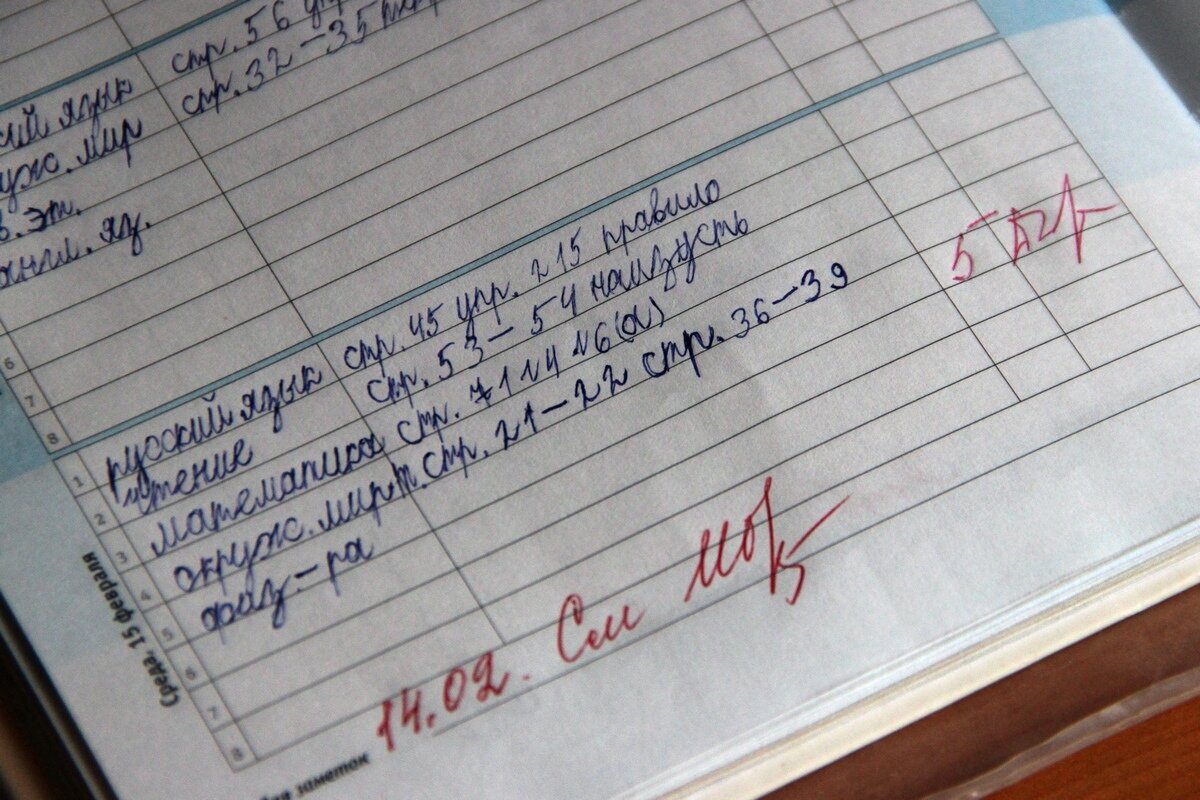 стр. 56 упр
ский язык стр. 32-35
уж. мир
в. эт.
англ. яз.
6
7
8
1 русский язык стр. 45 упр. 215 правило
2 чтение стр. 53-54 наизусть
3 математика стр. 71 №4 №6(а)
4 окруж. мир т. стр. 21-22 стр. 36-39
5 физ-ра
6
7
8
5
Среда, 15 февраля
14.02. См
для заметок